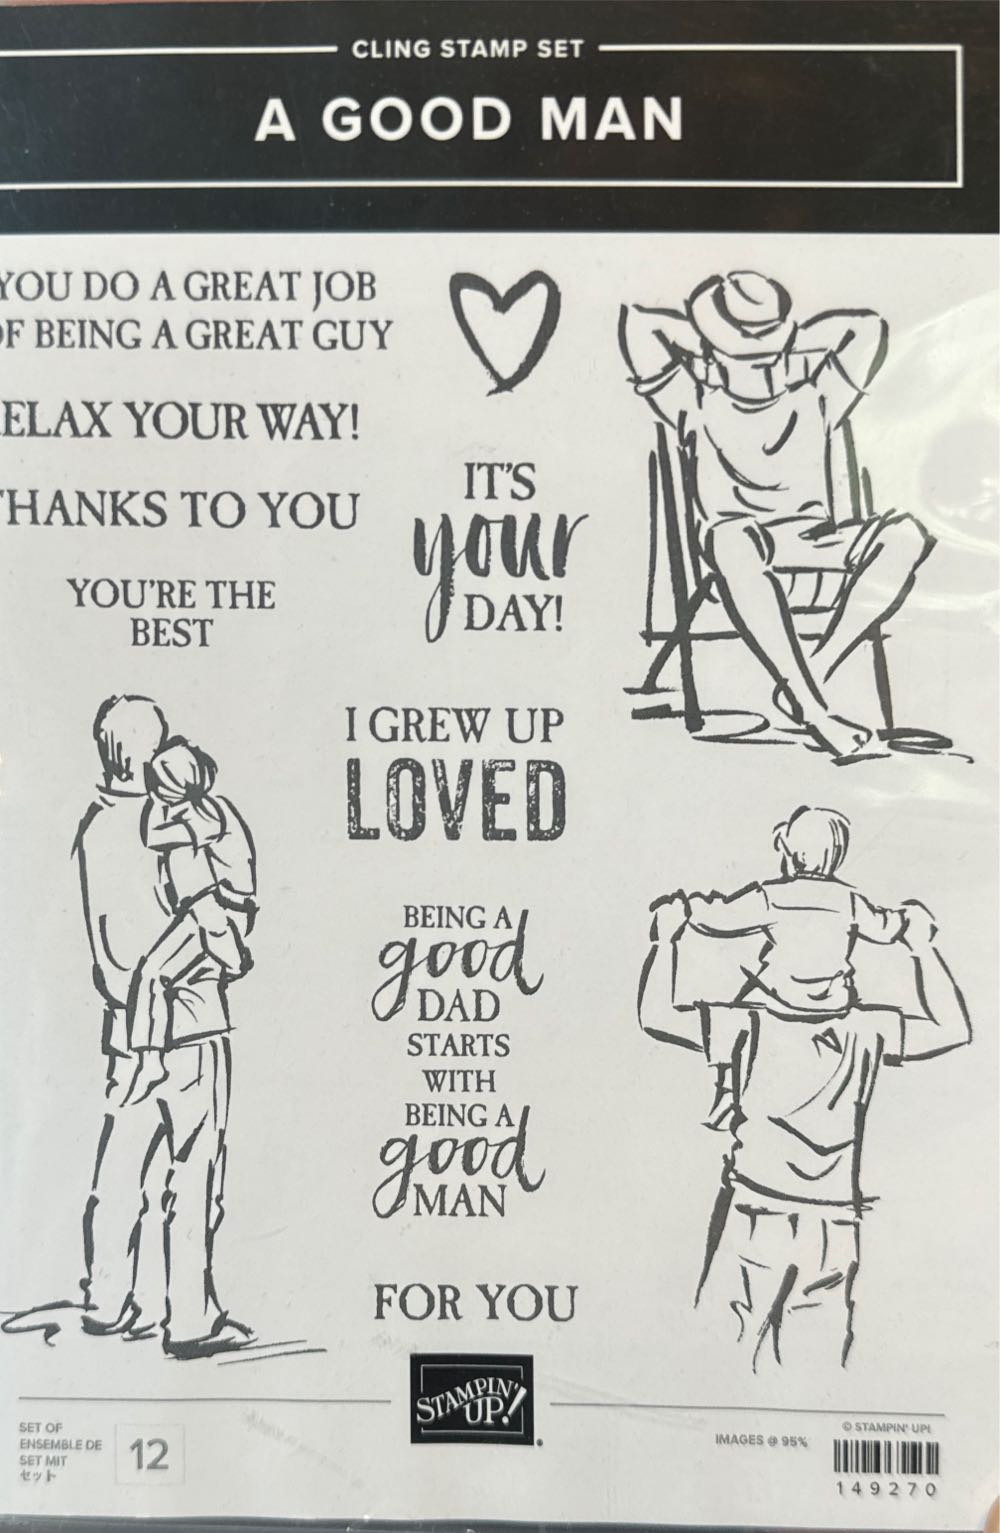 CLING STAMP SET
A GOOD MAN
YOU DO A GREAT JOB
OF BEING A GREAT GUY
RELAX YOUR WAY!
THANKS TO YOU
YOU'RE THE
BEST
IT'S
your
DAY!
I GREW UP
LOVED
BEING A
good
DAD
STARTS
WITH
BEING A
good
MAN
FOR YOU
STAMPIN'
UP!
SET OF
ENSEMBLE DE
SET MIT
セット
12
IMAGES @ 95%
© STAMPIN' UP!
149270